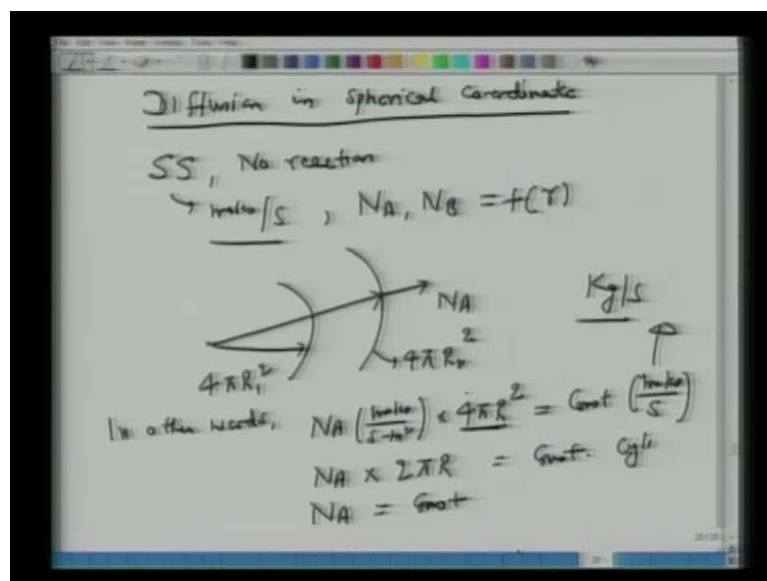 Diffusion in Spherical Coordinate
SS, No reaction
moles/s , NA, NB = f(r)
NA
Kg/s
4πR₁²
4πR₂²
In other words, NA (moles/s-m²) × 4πR² = Const (moles/s)
NA × 2πR = Const. Cyli
NA = Const